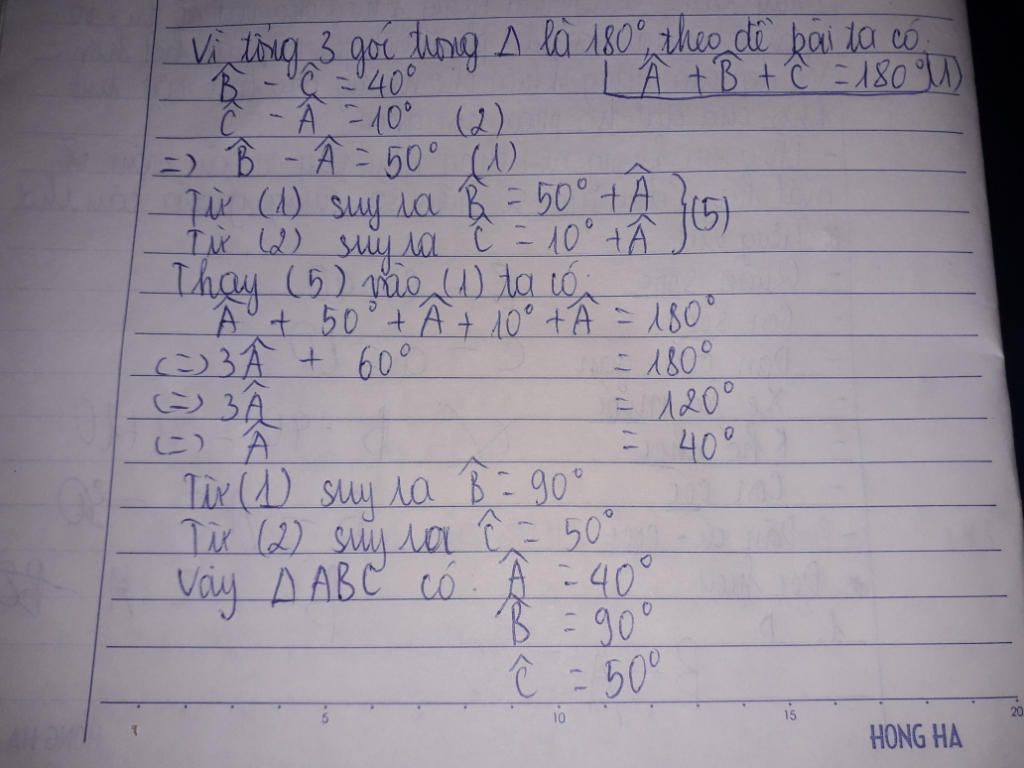 Vì tổng 3 góc trong Δ là 180°, theo đề bài ta có.
B̂ - Ĉ = 40°
Â + B̂ + Ĉ = 180° (1)
Ĉ - Â = 10° (2)
=> B̂ - Â = 50° (1)
Từ (1) suy ra B̂ = 50° + Â } (5)
Từ (2) suy ra Ĉ = 10° + Â
Thay (5) vào (1) ta có.
Â + 50° + Â + 10° + Â = 180°
(=) 3Â + 60° = 180°
(=) 3Â = 120°
(=) Â = 40°
Từ (1) suy ra B̂ = 90°
Từ (2) suy ra Ĉ = 50°
Vậy Δ ABC có. Â = 40°
B̂ = 90°
Ĉ = 50°
5 10 15 20
HONG HA